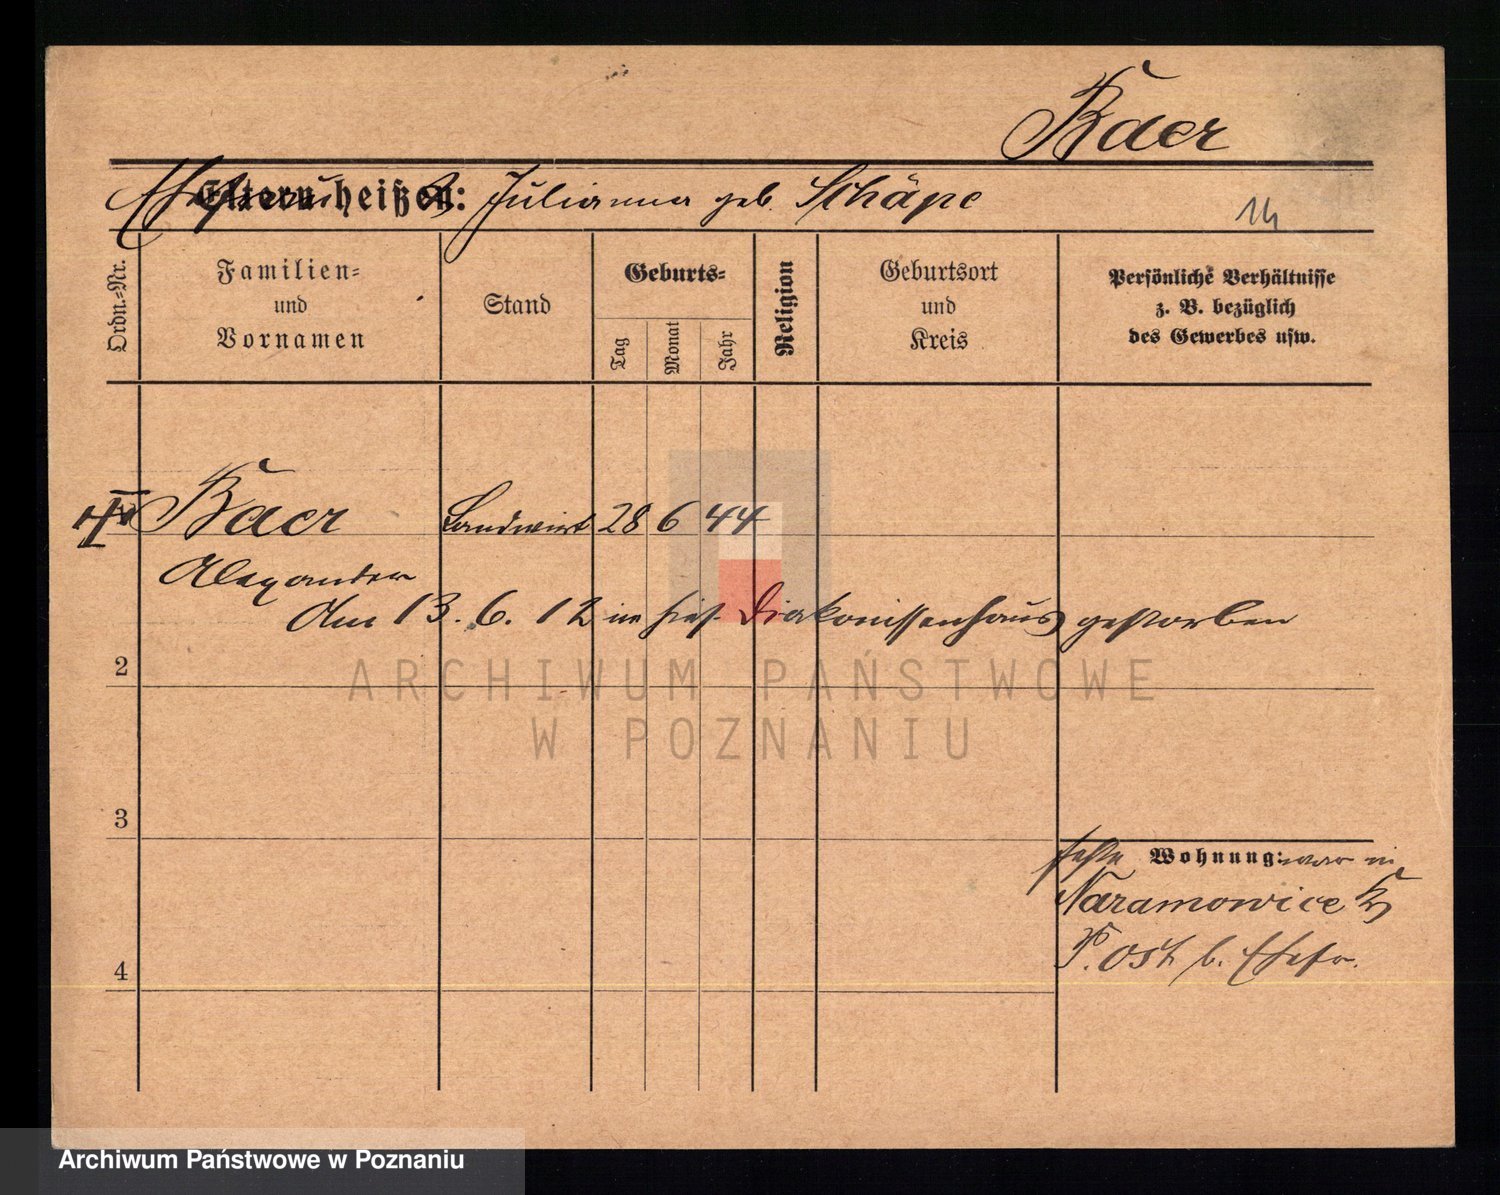 Baer
Eltern heißen: Julianna geb. Schäpe
14
Ordn.-Nr.
Familien-
und
Vornamen
Stand
Geburts-
Tag
Monat
Jahr
Religion
Geburtsort
und
Kreis
Persönliche Verhältnisse
z. B. bezüglich
des Gewerbes usw.
Baer Landwirt 28 6 44
Alexander
Am 13. 6. 12 im hies. Diakonissenhaus gestorben
2
ARCHIWUM PAŃSTWOWE
W POZNANIU
3
feste Wohnung: war in
Naramowice
Post b.
4
Archiwum Państwowe w Poznaniu